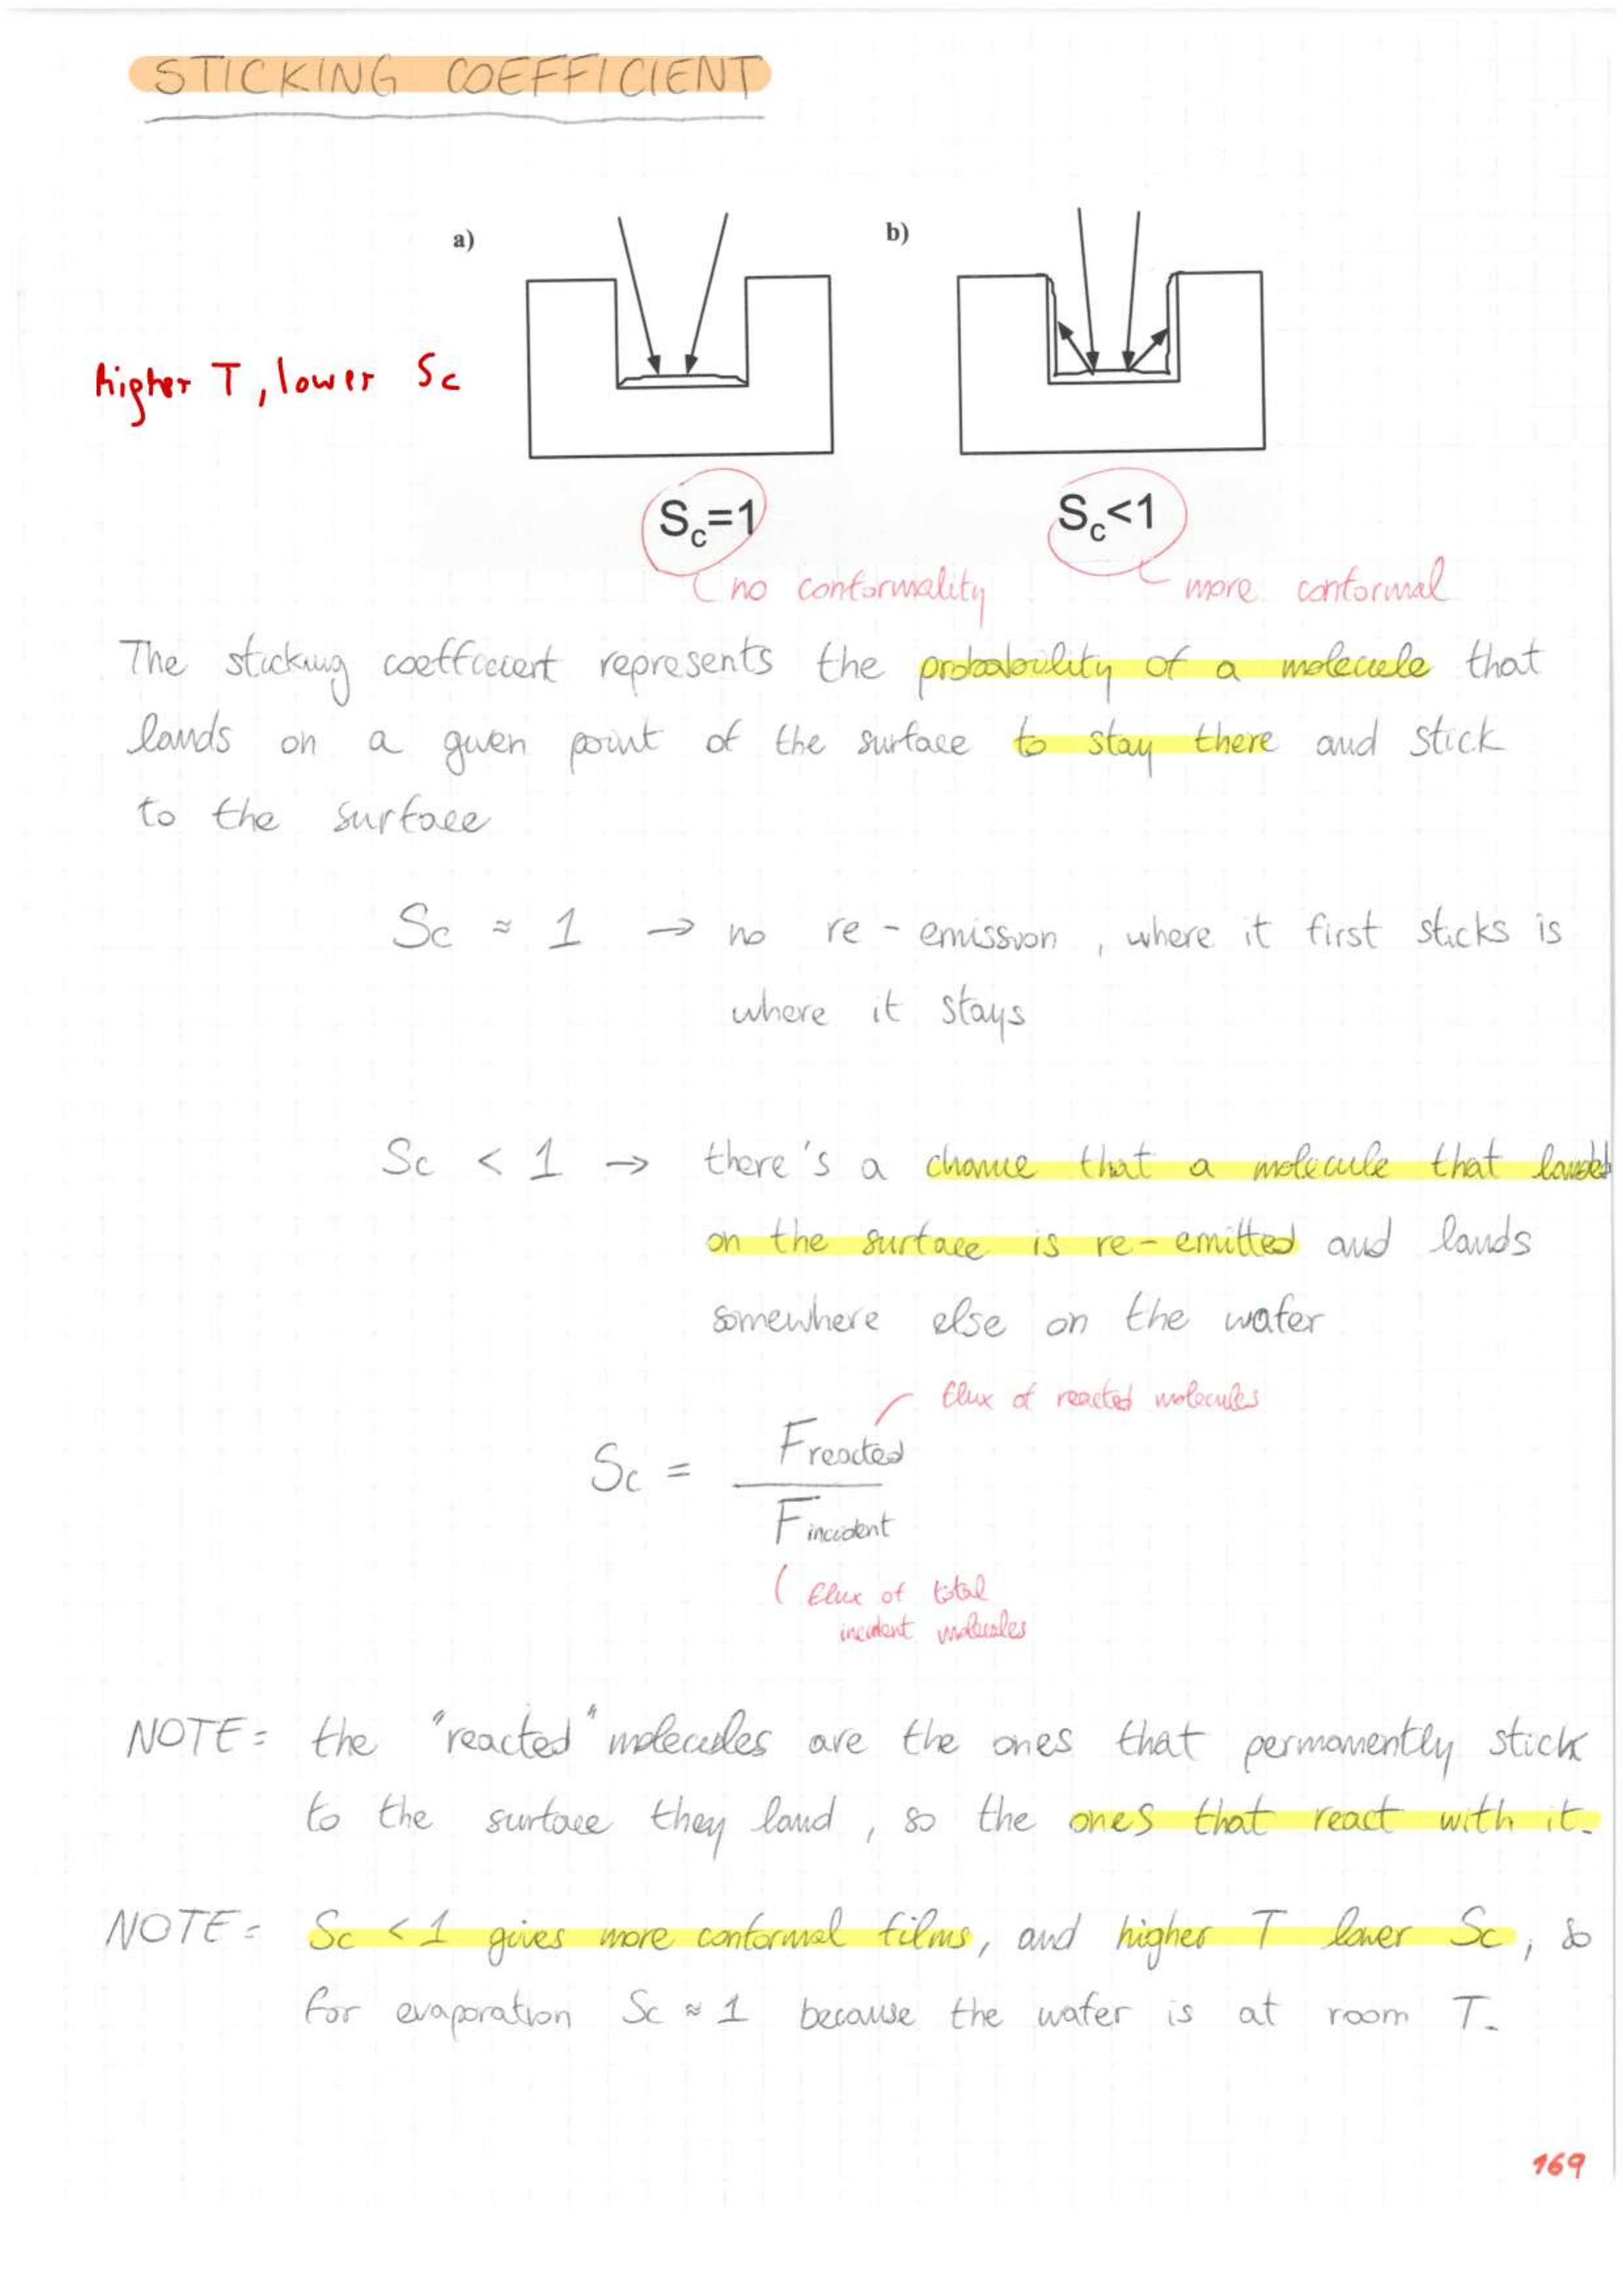 STICKING COEFFICIENT
a)
b)
higher T, lower Sc
Sc=1
Sc<1
no conformality
more conformal
The sticking coefficient represents the probability of a molecule that
lands on a given point of the surface to stay there and stick
to the surface
Sc ≈ 1 → no re-emission, where it first sticks is
where it stays
Sc < 1 → there's a chance that a molecule that landed
on the surface is re-emitted and lands
somewhere else on the wafer
flux of reacted molecules
Sc = Freacted
Fincident
flux of total
incident molecules
NOTE: the "reacted" molecules are the ones that permanently stick
to the surface they land, so the ones that react with it.
NOTE: Sc < 1 gives more conformal films, and higher T lower Sc, so
for evaporation Sc ≈ 1 because the wafer is at room T.
169